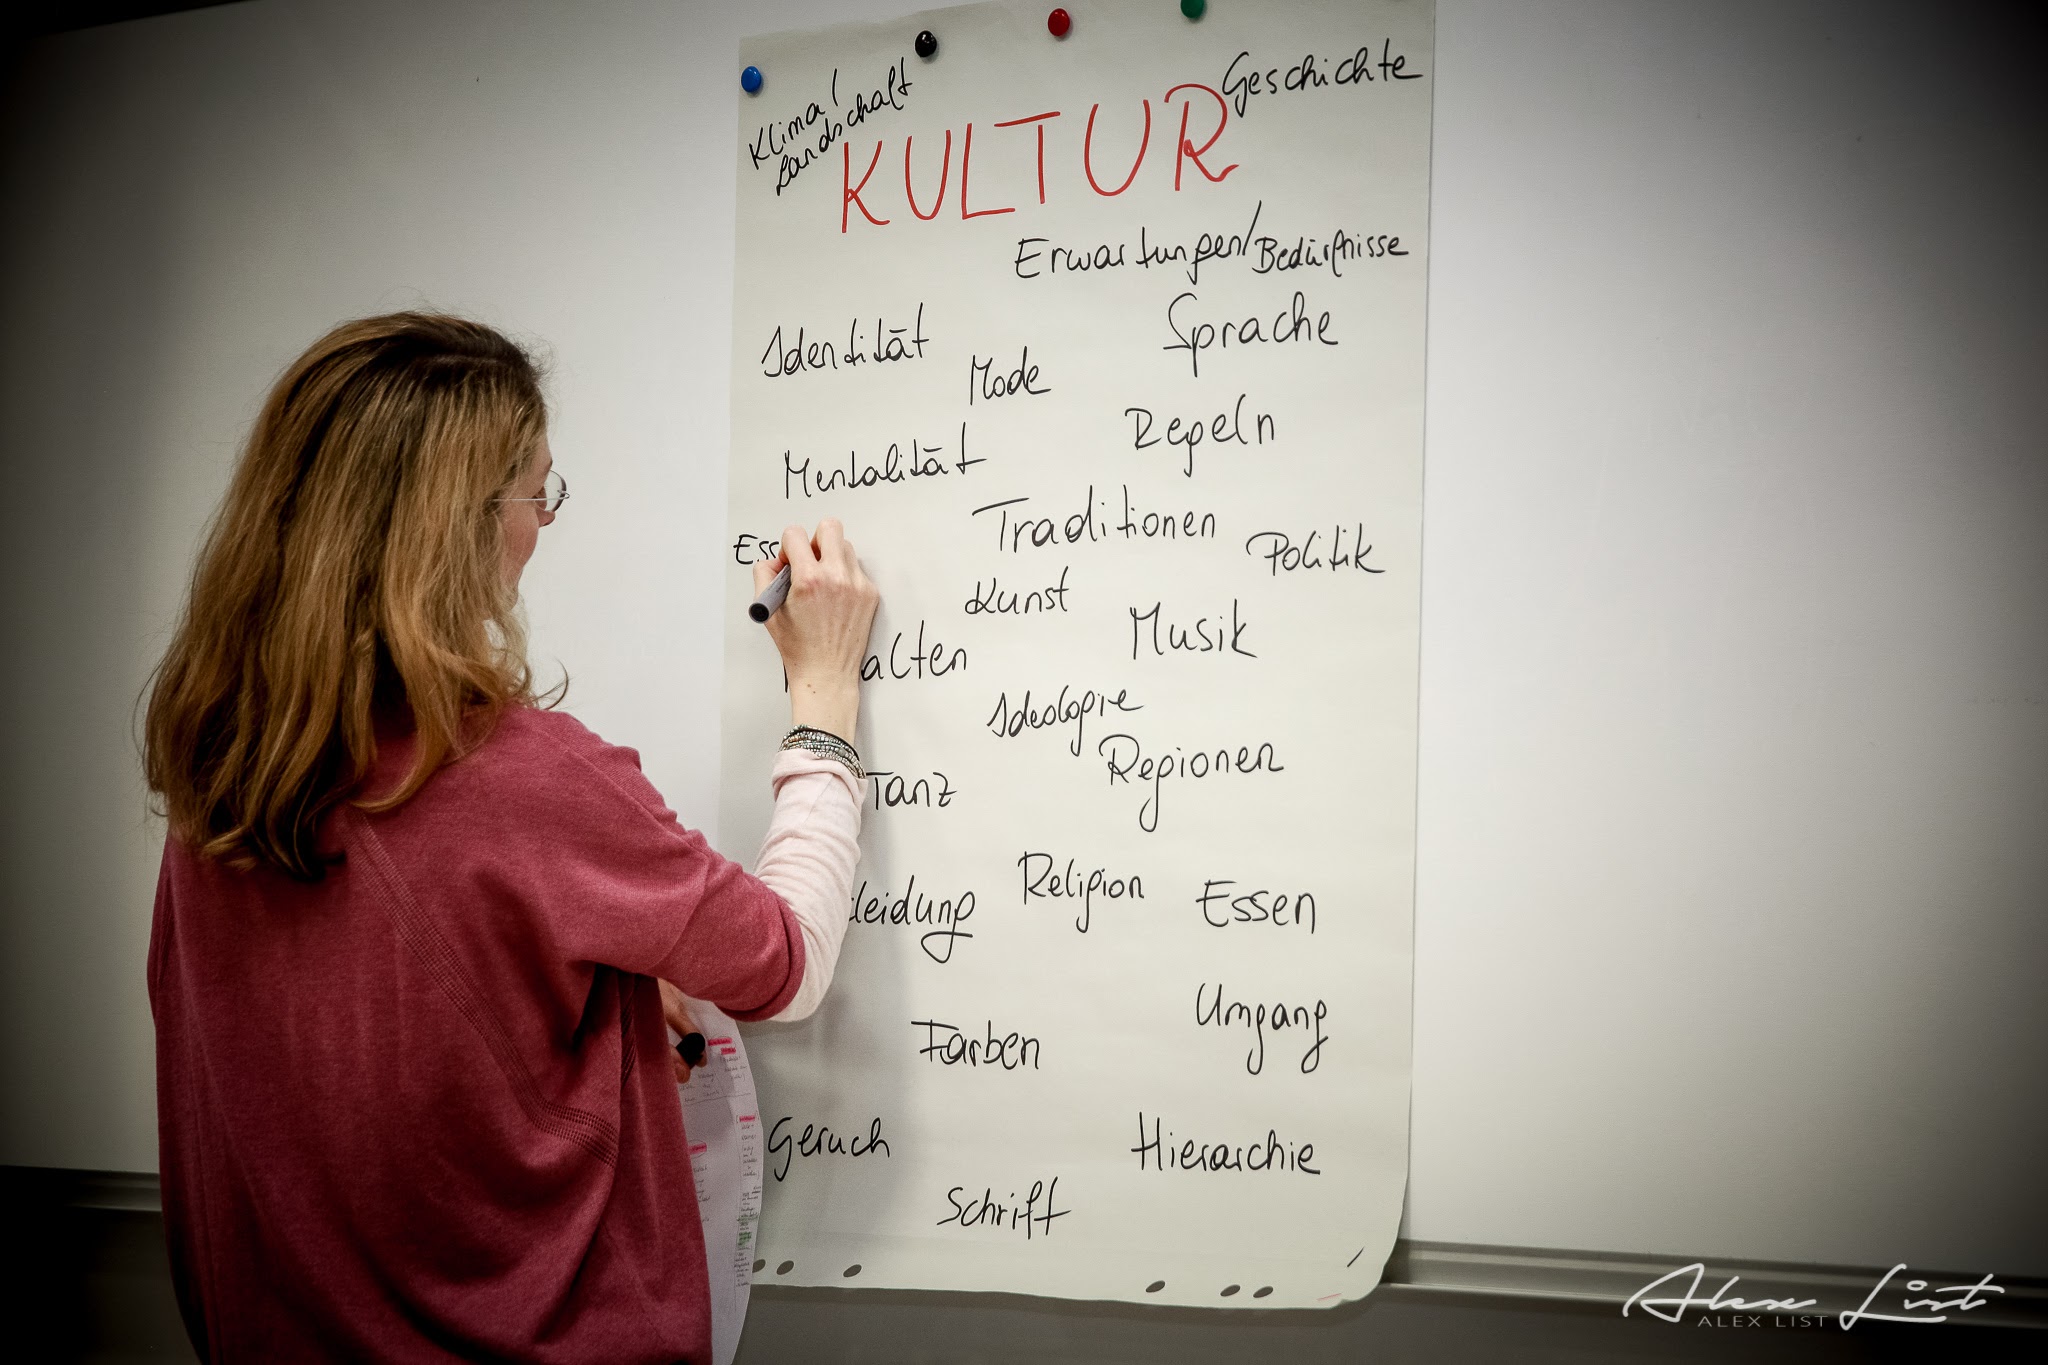 Klima/
Landschaft
Geschichte
KULTUR
Erwartungen/Bedürfnisse
Sprache
Identität
Mode
Regeln
Mentalität
Traditionen
Politik
Ess
Kunst
Musik
alten
Ideologie
Regionen
Tanz
Religion
Essen
leidung
Umgang
Farben
Geruch
Hierarchie
Schrift
Alex List
ALEX LIST